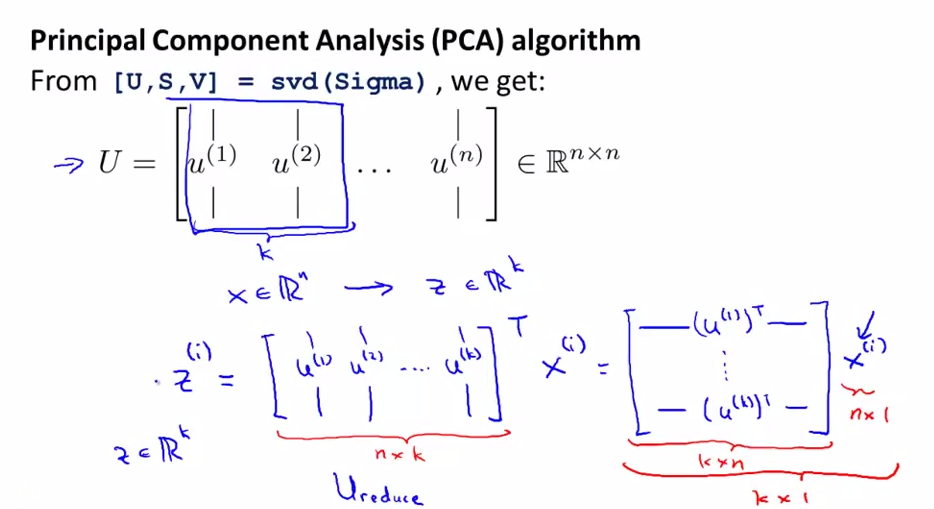 Principal Component Analysis (PCA) algorithm
From [U,S,V] = svd(Sigma), we get:
→ U = [ u^(1) u^(2) ... u^(n) ] ∈ ℝ^{n×n}
k
x ∈ ℝ^n → z ∈ ℝ^k
z^(i) = [ u^(1) u^(2) .... u^(k) ]^T x^(i) = [ —(u^(1))^T— ⋮ —(u^(k))^T— ] x^(i)
z ∈ ℝ^k
n×k
k×n
n×1
Ureduce
k×1